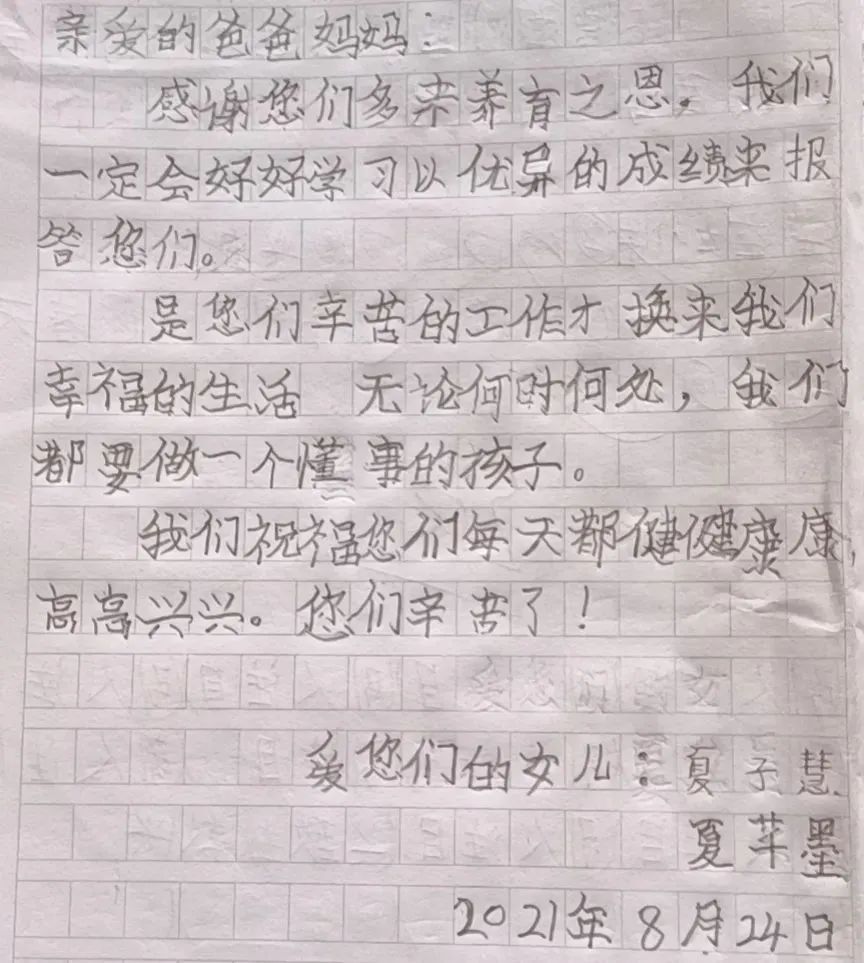 亲爱的爸爸妈妈：
感谢您们多来养育之恩。我们
一定会好好学习以优异的成绩来报
答您们。
是您们辛苦的工作才换来我们
幸福的生活 无论何时何处，我们
都要做一个懂事的孩子。
我们祝福您们每天都健健康康，
高高兴兴。您们辛苦了！
爱您们的女儿：夏子慧
夏苹墨
2021年8月24日